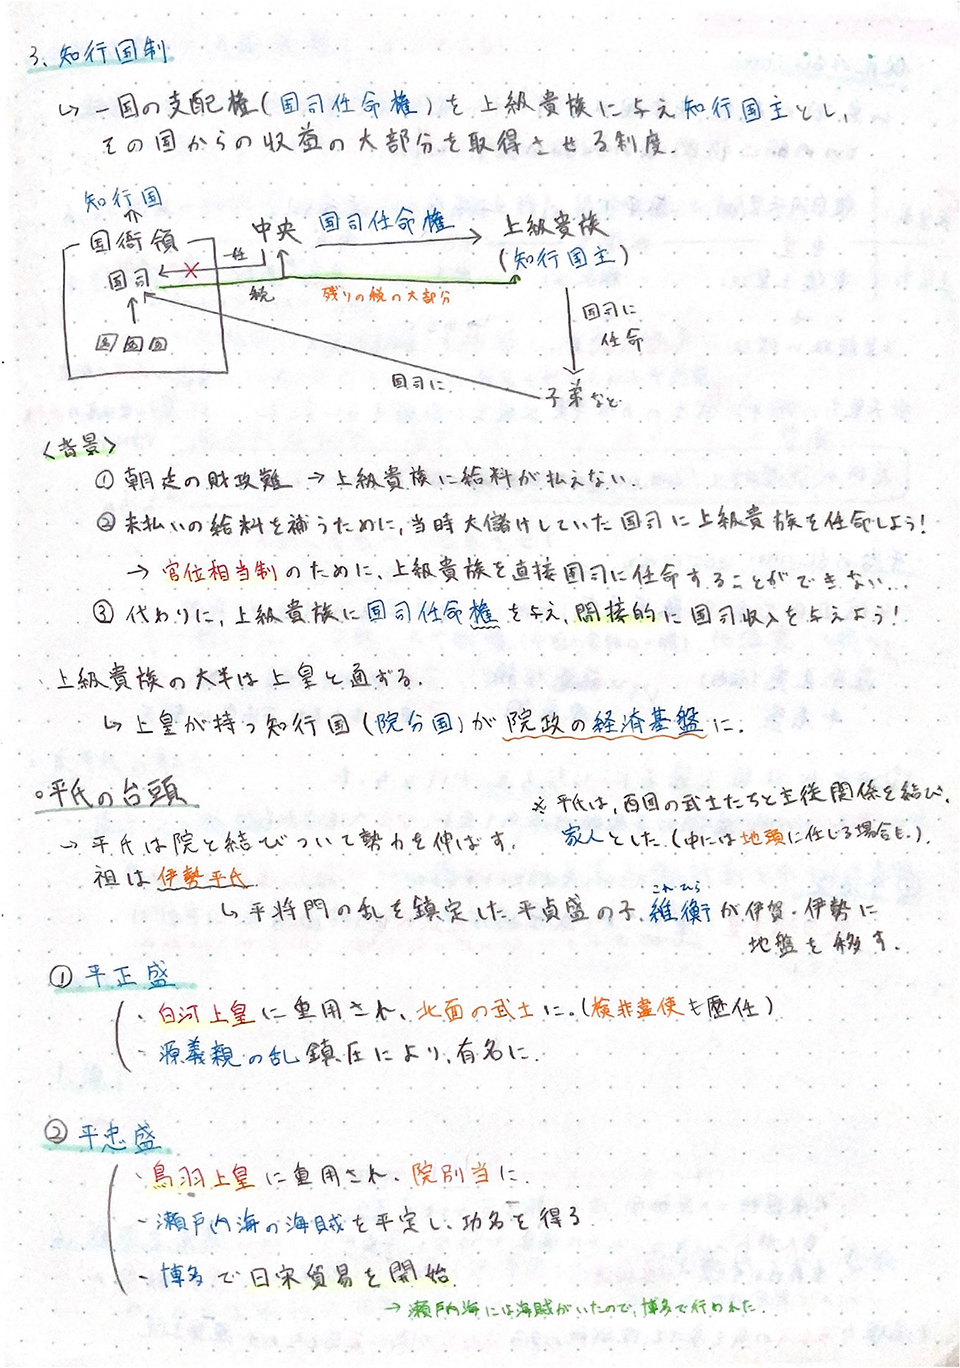 3、知行国制
↳ 一国の支配権(国司任命権)を上級貴族に与え知行国主とし、
その国からの収益の大部分を取得させる制度.
知行国
国衙領
中央
国司任命権
上級貴族
(知行国主)
国司
任
税
残りの税の大部分
国司に
任命
国司に
子弟など
〈背景〉
① 朝廷の財政難 → 上級貴族に給料が払えない.
② 未払いの給料を補うために、当時大儲けしていた国司に上級貴族を任命しよう!
→ 官位相当制のために、上級貴族を直接国司に任命することができない...
③ 代わりに、上級貴族に国司任命権を与え、間接的に国司収入を与えよう!
上級貴族の大半は上皇と通ずる.
↳ 上皇が持つ知行国(院分国)が院政の経済基盤に.
○平氏の台頭
※ 平氏は、西国の武士たちと主従関係を結び、
家人とした.(中には地頭に任じる場合も.)
→ 平氏は院と結びついて勢力を伸ばす.
祖は伊勢平氏
↳ 平将門の乱を鎮定した平貞盛の子、維衡が伊賀・伊勢に
これひら
地盤を移す.
① 平正盛
・白河上皇に重用され、北面の武士に。(検非違使も歴任)
・源義親の乱鎮圧により、有名に.
② 平忠盛
・鳥羽上皇に重用され、院別当に
・瀬戸内海の海賊を平定し、功名を得る
・博多で日宋貿易を開始
→ 瀬戸内海には海賊がいたので、博多で行われた.